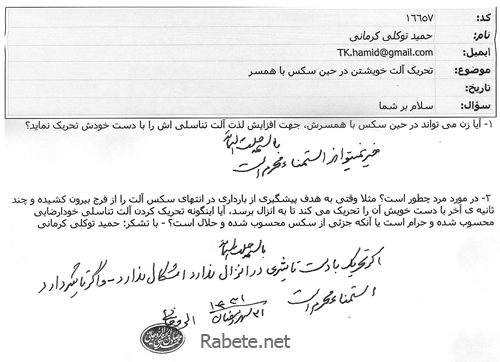 کد:
۱۶۶۵۷
نام:
حمید توکلی کرمانی
ایمیل:
TK.hamid@gmail.com
موضوع:
تحریک آلت خویشتن در حین سکس با همسر
تاریخ:
سؤال:
سلام بر شما
۱- آیا زن می تواند در حین سکس با همسرش، جهت افزایش لذت آلت تناسلی اش را با دست خودش تحریک نماید؟
خیر نمیتواند استمناء و محرم است
۲- در مورد مرد چطور است؟ مثلا وقتی به هدف پیشگیری از بارداری در انتهای سکس آلت را از فرج بیرون کشیده و چند
ثانیه ی آخر با دست خویش آن را تحریک می کند تا به انزال برسد، آیا اینگونه تحریک کردن آلت تناسلی خودارضایی
محسوب شده و حرام است یا آنکه جزئی از سکس محسوب شده و حلال است؟ - با تشکر: حمید توکلی کرمانی
اگر تحریک با دست تاثیری در انزال ندارد اشکال ندارد - و اگر تاثیر دارد
استمناء و محرم است
Rabete.net